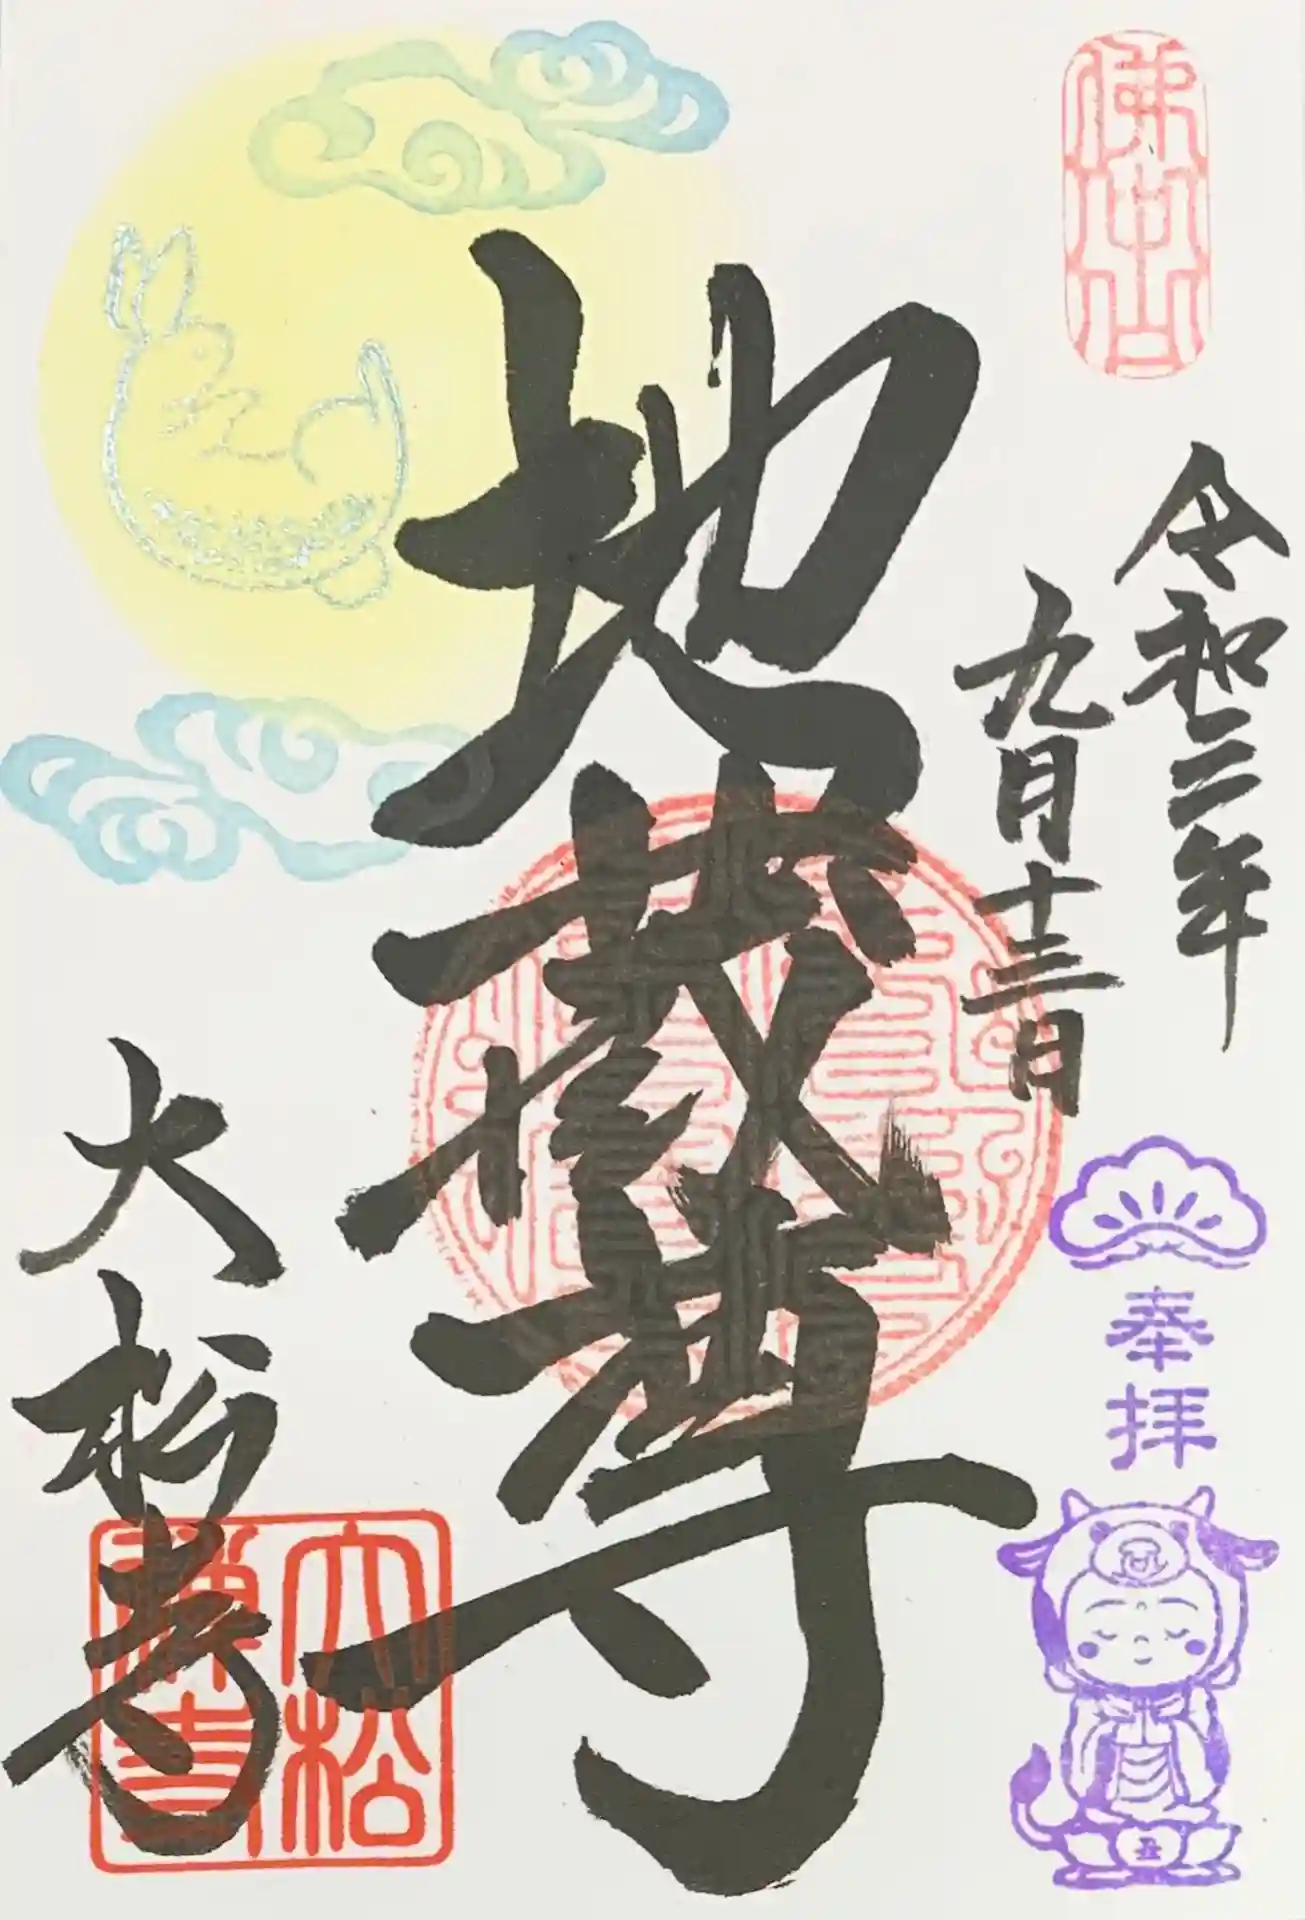 令和二年
九月十三日
奉拝
地蔵尊
大松寺
大松
禅寺
丑